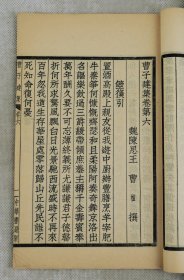 曹子建集卷第六
魏陳思王 曹植 撰
箜篌引
置酒高殿上親友從我遊中廚辦豐膳烹羊宰肥
牛秦箏何慷慨齊瑟和且柔陽阿奏奇舞京洛出
名謳樂飲過三爵緩帶傾庶羞主稱千金壽賓奉
萬年酬久要不可忘薄終義所尤謙謙君子德磬
折何所求驚風飄白日光景馳西流盛時不可再
百年忽我遒生存華屋處零落歸山丘先民誰不
死知命復何憂
曹子建集 卷六 一 中華書局聚